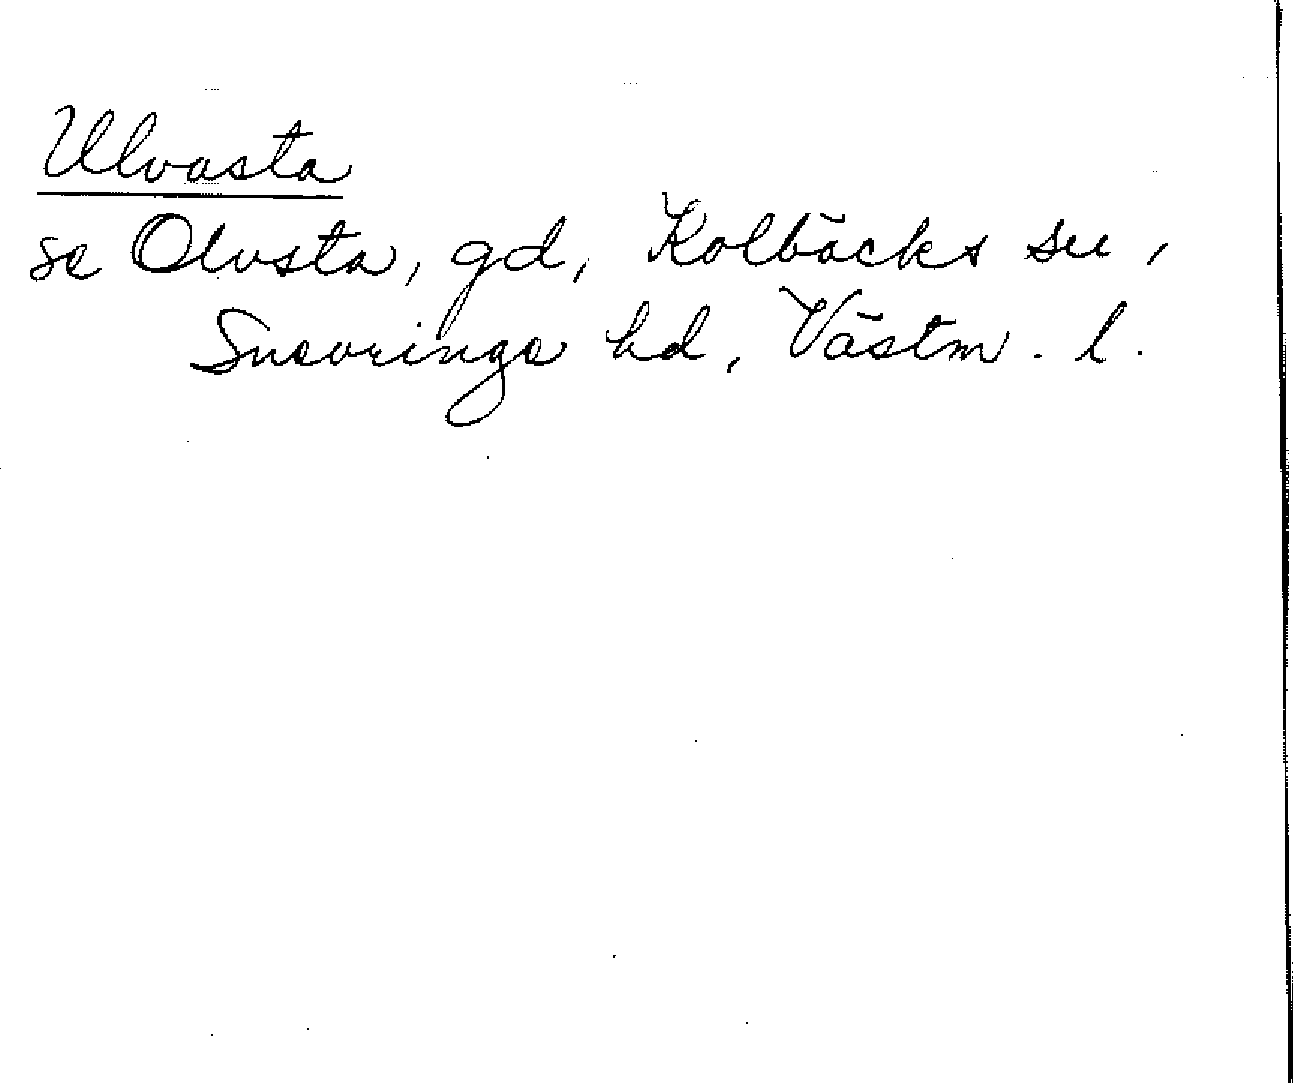 Ulvasta
se Olvsta, gd, Kolbäcks sn,
Snevringe hd, Västm. l.